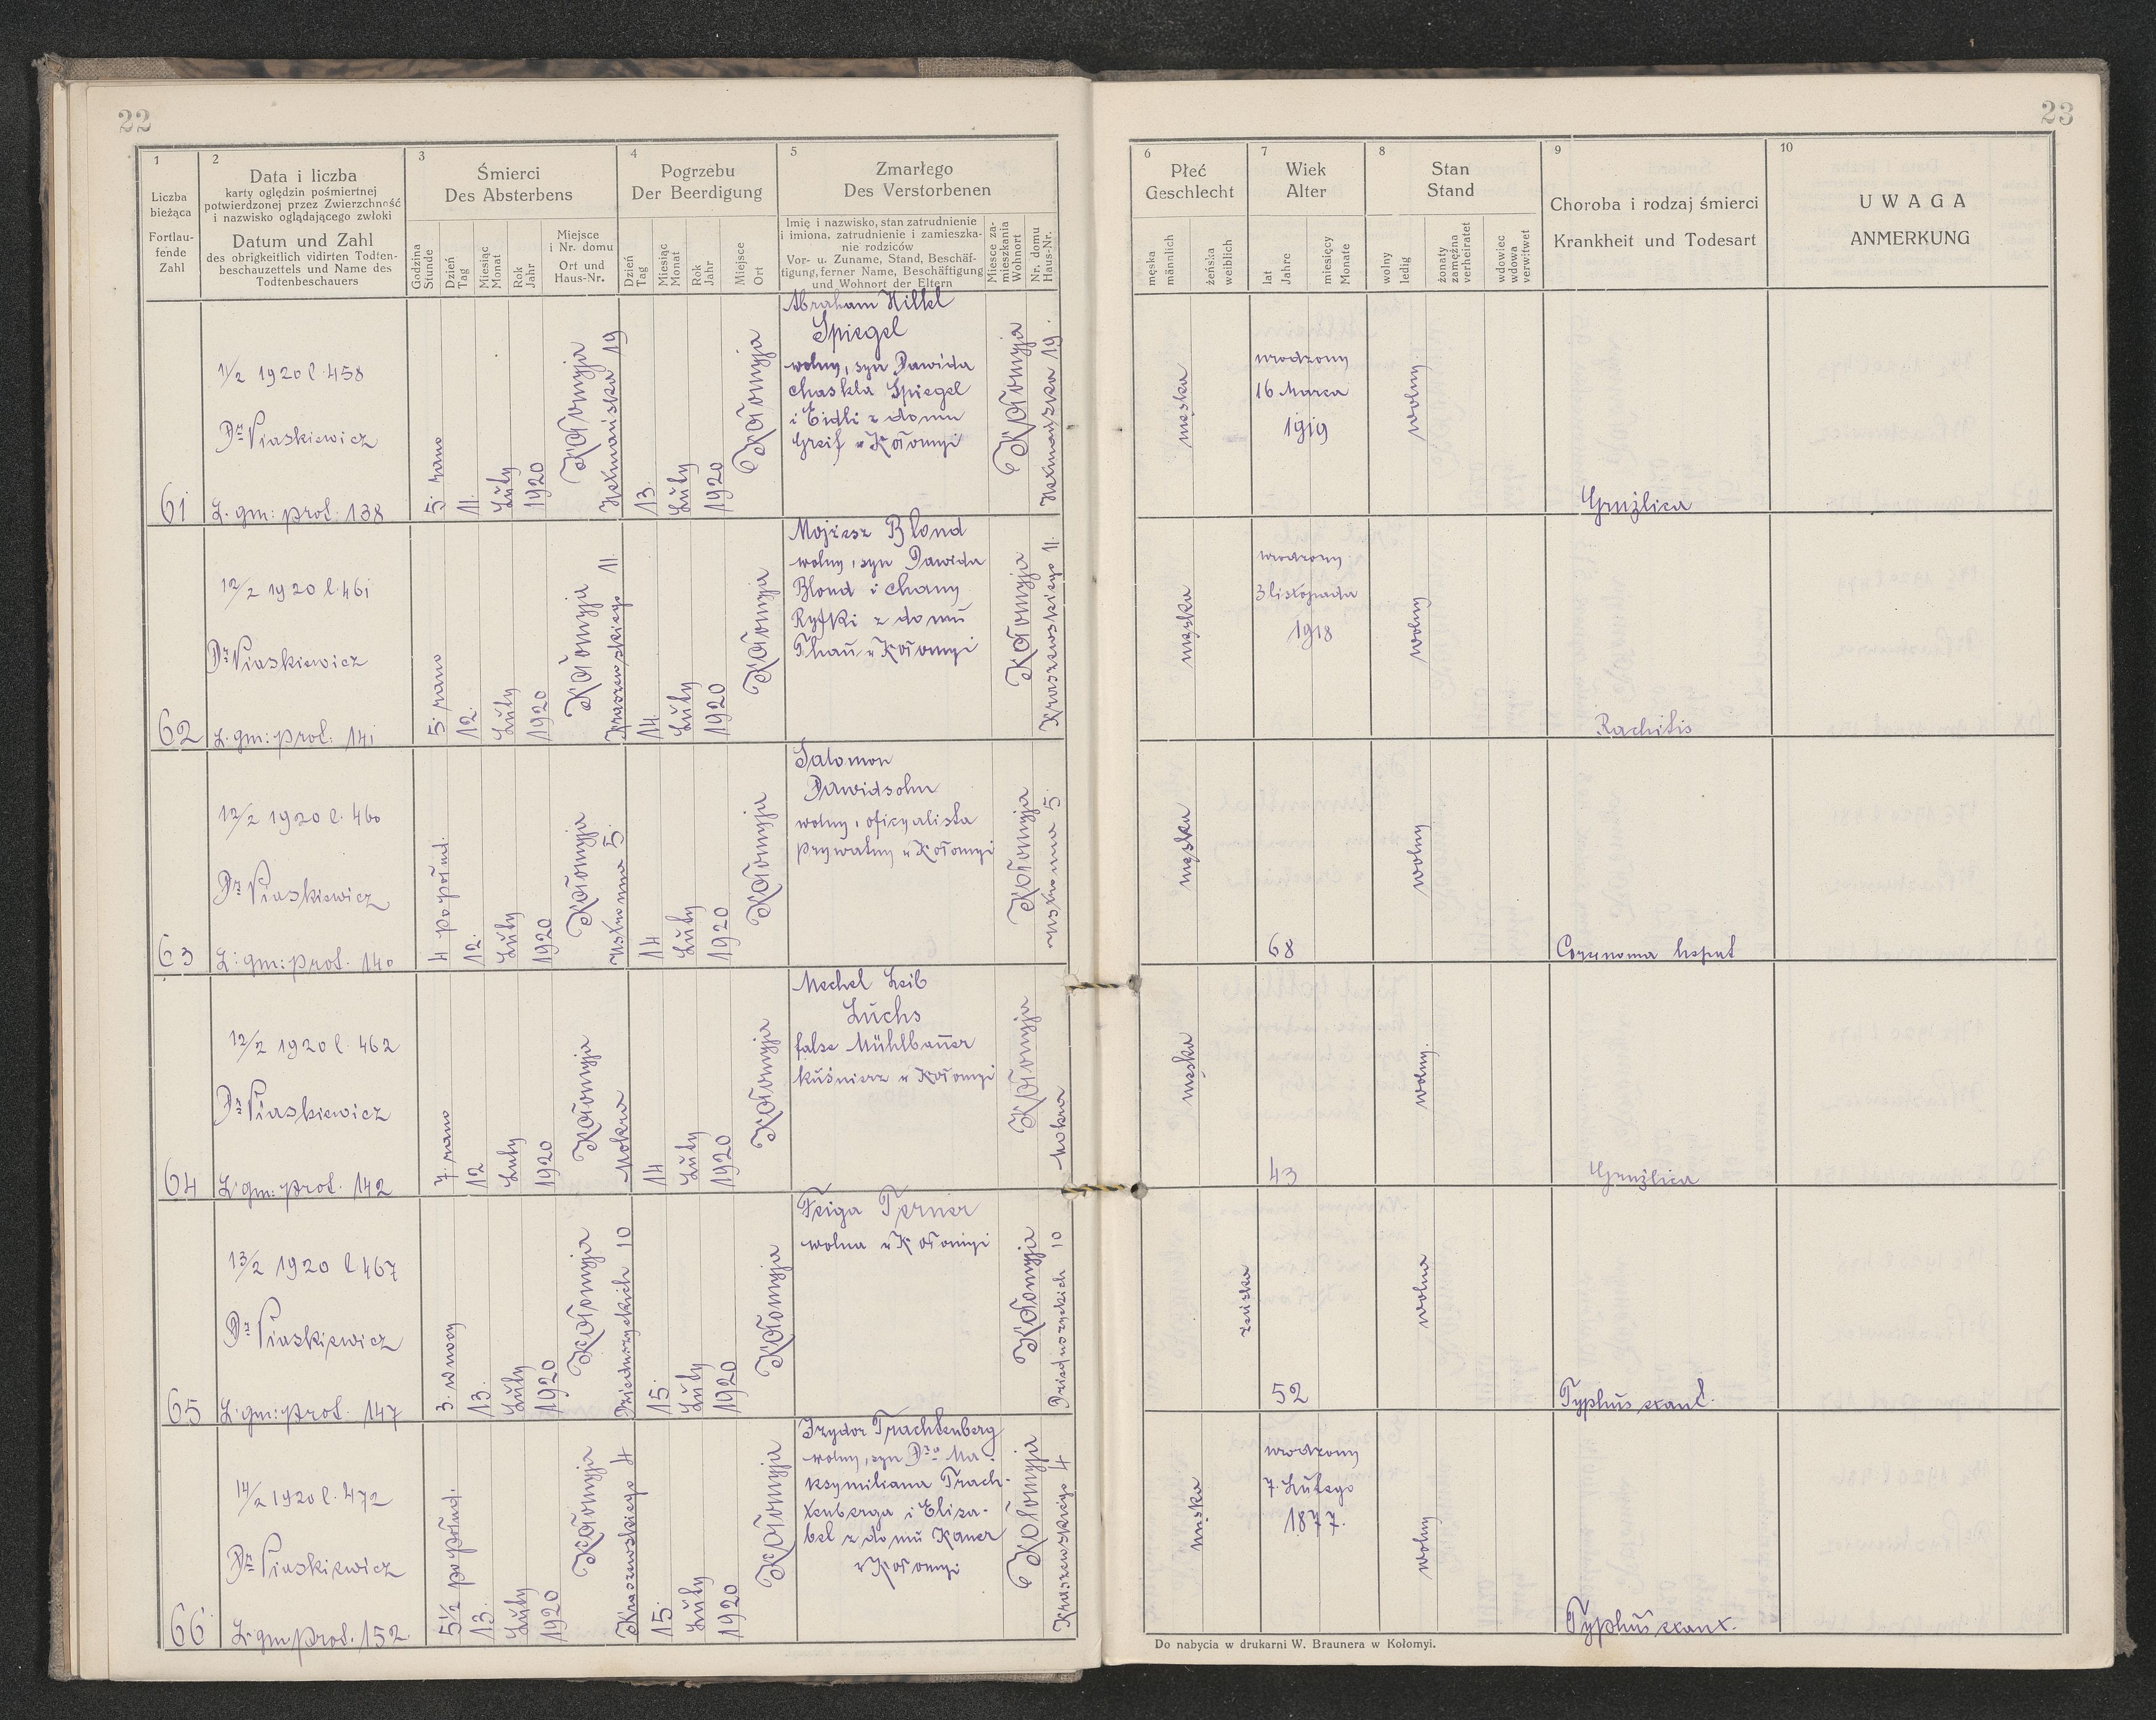 22
1
Liczba
bieżąca
Fortlau-
fende
Zahl
2
Data i liczba
karty oględzin pośmiertnej
potwierdzonej przez Zwierzchność
i nazwisko oglądającego zwłoki
Datum und Zahl
des obrigkeitlich vidirten Todten-
beschauzettels und Name des
Todtenbeschauers
3
Śmierci
Des Absterbens
Godzina
Stunde
Dzień
Tag
Miesiąc
Monat
Rok
Jahr
Miejsce
i Nr. domu
Ort und
Haus-Nr.
4
Pogrzebu
Der Beerdigung
Dzień
Tag
Miesiąc
Monat
Rok
Jahr
Miejsce
Ort
5
Zmarłego
Des Verstorbenen
Imię i nazwisko, stan zatrudnienie
i imiona, zatrudnienie i zamieszka-
nie rodziców
Vor- u. Zuname, Stand, Beschäf-
tigung, ferner Name, Beschäftigung
und Wohnort der Eltern
Miesce za-
mieszkania
Wohnort
Nr. domu
Haus-Nr.
61
11/2 1920 l. 458
Dr Piaskiewicz
L. gm: prot. 138
5. rano
11.
Luty
1920
Kołomyja
Hetmańska 19
13.
Luty
1920
Kołomyja
Abraham Hillel
Spiegel
wolny, syn Dawida
Chaskla Spiegel
i Eidli z domu
Greif z Kołomyi
Kołomyja
Hetmańska 19.
62
12/2 1920 l. 461
Dr Piaskiewicz
L. gm: prot: 141
5. rano
12.
Luty
1920
Kołomyja
Kraszewskiego 11.
14.
Luty
1920
Kołomyja
Mojżesz Blond
wolny, syn Dawida
Blond i Chany
Ryfki z domu
Thau z Kołomyi
Kołomyja
Kraszewskiego 11.
63
12/2 1920 l. 460
Dr Piaskiewicz
L: gm: prot. 140
4 popołud.
12.
Luty
1920
Kołomyja
5.
14
Luty
1920
Kołomyja
Salomon
Dawidsohn
wolny, oficyalista
prywatny z Kołomyi
Kołomyja
5.
64
12/2 1920 l. 462
Dr Piaskiewicz
L: gm: prot. 142
7. rano
12
Luty
1920
Kołomyja
Mokra
14
Luty
1920
Kołomyja
Mechel Leib
Luchs
false Mühlbauer
kuśnierz z Kołomyi
Kołomyja
Mokra
65
13/2 1920 l 467
Dr Piaskiewicz
L: gm: prot. 147
3. w nocy
13.
Luty
1920
Kołomyja
Dzieduszyckich 10
15.
Luty
1920
Kołomyja
Feiga Terner
wolna z Kołomyi
Kołomyja
Dzieduszyckich 10
66
14/2 1920 l. 472
Dr Piaskiewicz
L: gm. prot. 152.
5½ popołud.
13.
Luty
1920
Kołomyja
Kraszewskiego 4
15.
Luty
1920
Kołomyja
Izydor Trachtenberg
wolny, syn Dra Ma-
ksymiliana Trach-
tenberga i Elisa-
bet z domu Kaner
z Kołomyi
Kołomyja
Kraszewskiego 4
23
6
Płeć
Geschlecht
męska
männlich
żeńska
weiblich
7
Wiek
Alter
lat
Jahre
miesięcy
Monate
8
Stan
Stand
wolny
ledig
żonaty
zamężna
verheiratet
wdowiec
wdowa
verwitwet
9
Choroba i rodzaj śmierci
Krankheit und Todesart
10
UWAGA
ANMERKUNG
męska
urodzony
16 Marca
1919
wolny
Gruźlica
męska
urodzony
3 listopada
1918
wolny
Rachitis
męska
68
wolny
hepat
męska
43
wolny.
Gruźlica
żeńska
52
wolna
Typhus exant.
męska
urodzony
7. Lutego
1877.
wolny
Typhus exant.
Do nabycia w drukarni W. Braunera w Kołomyi.